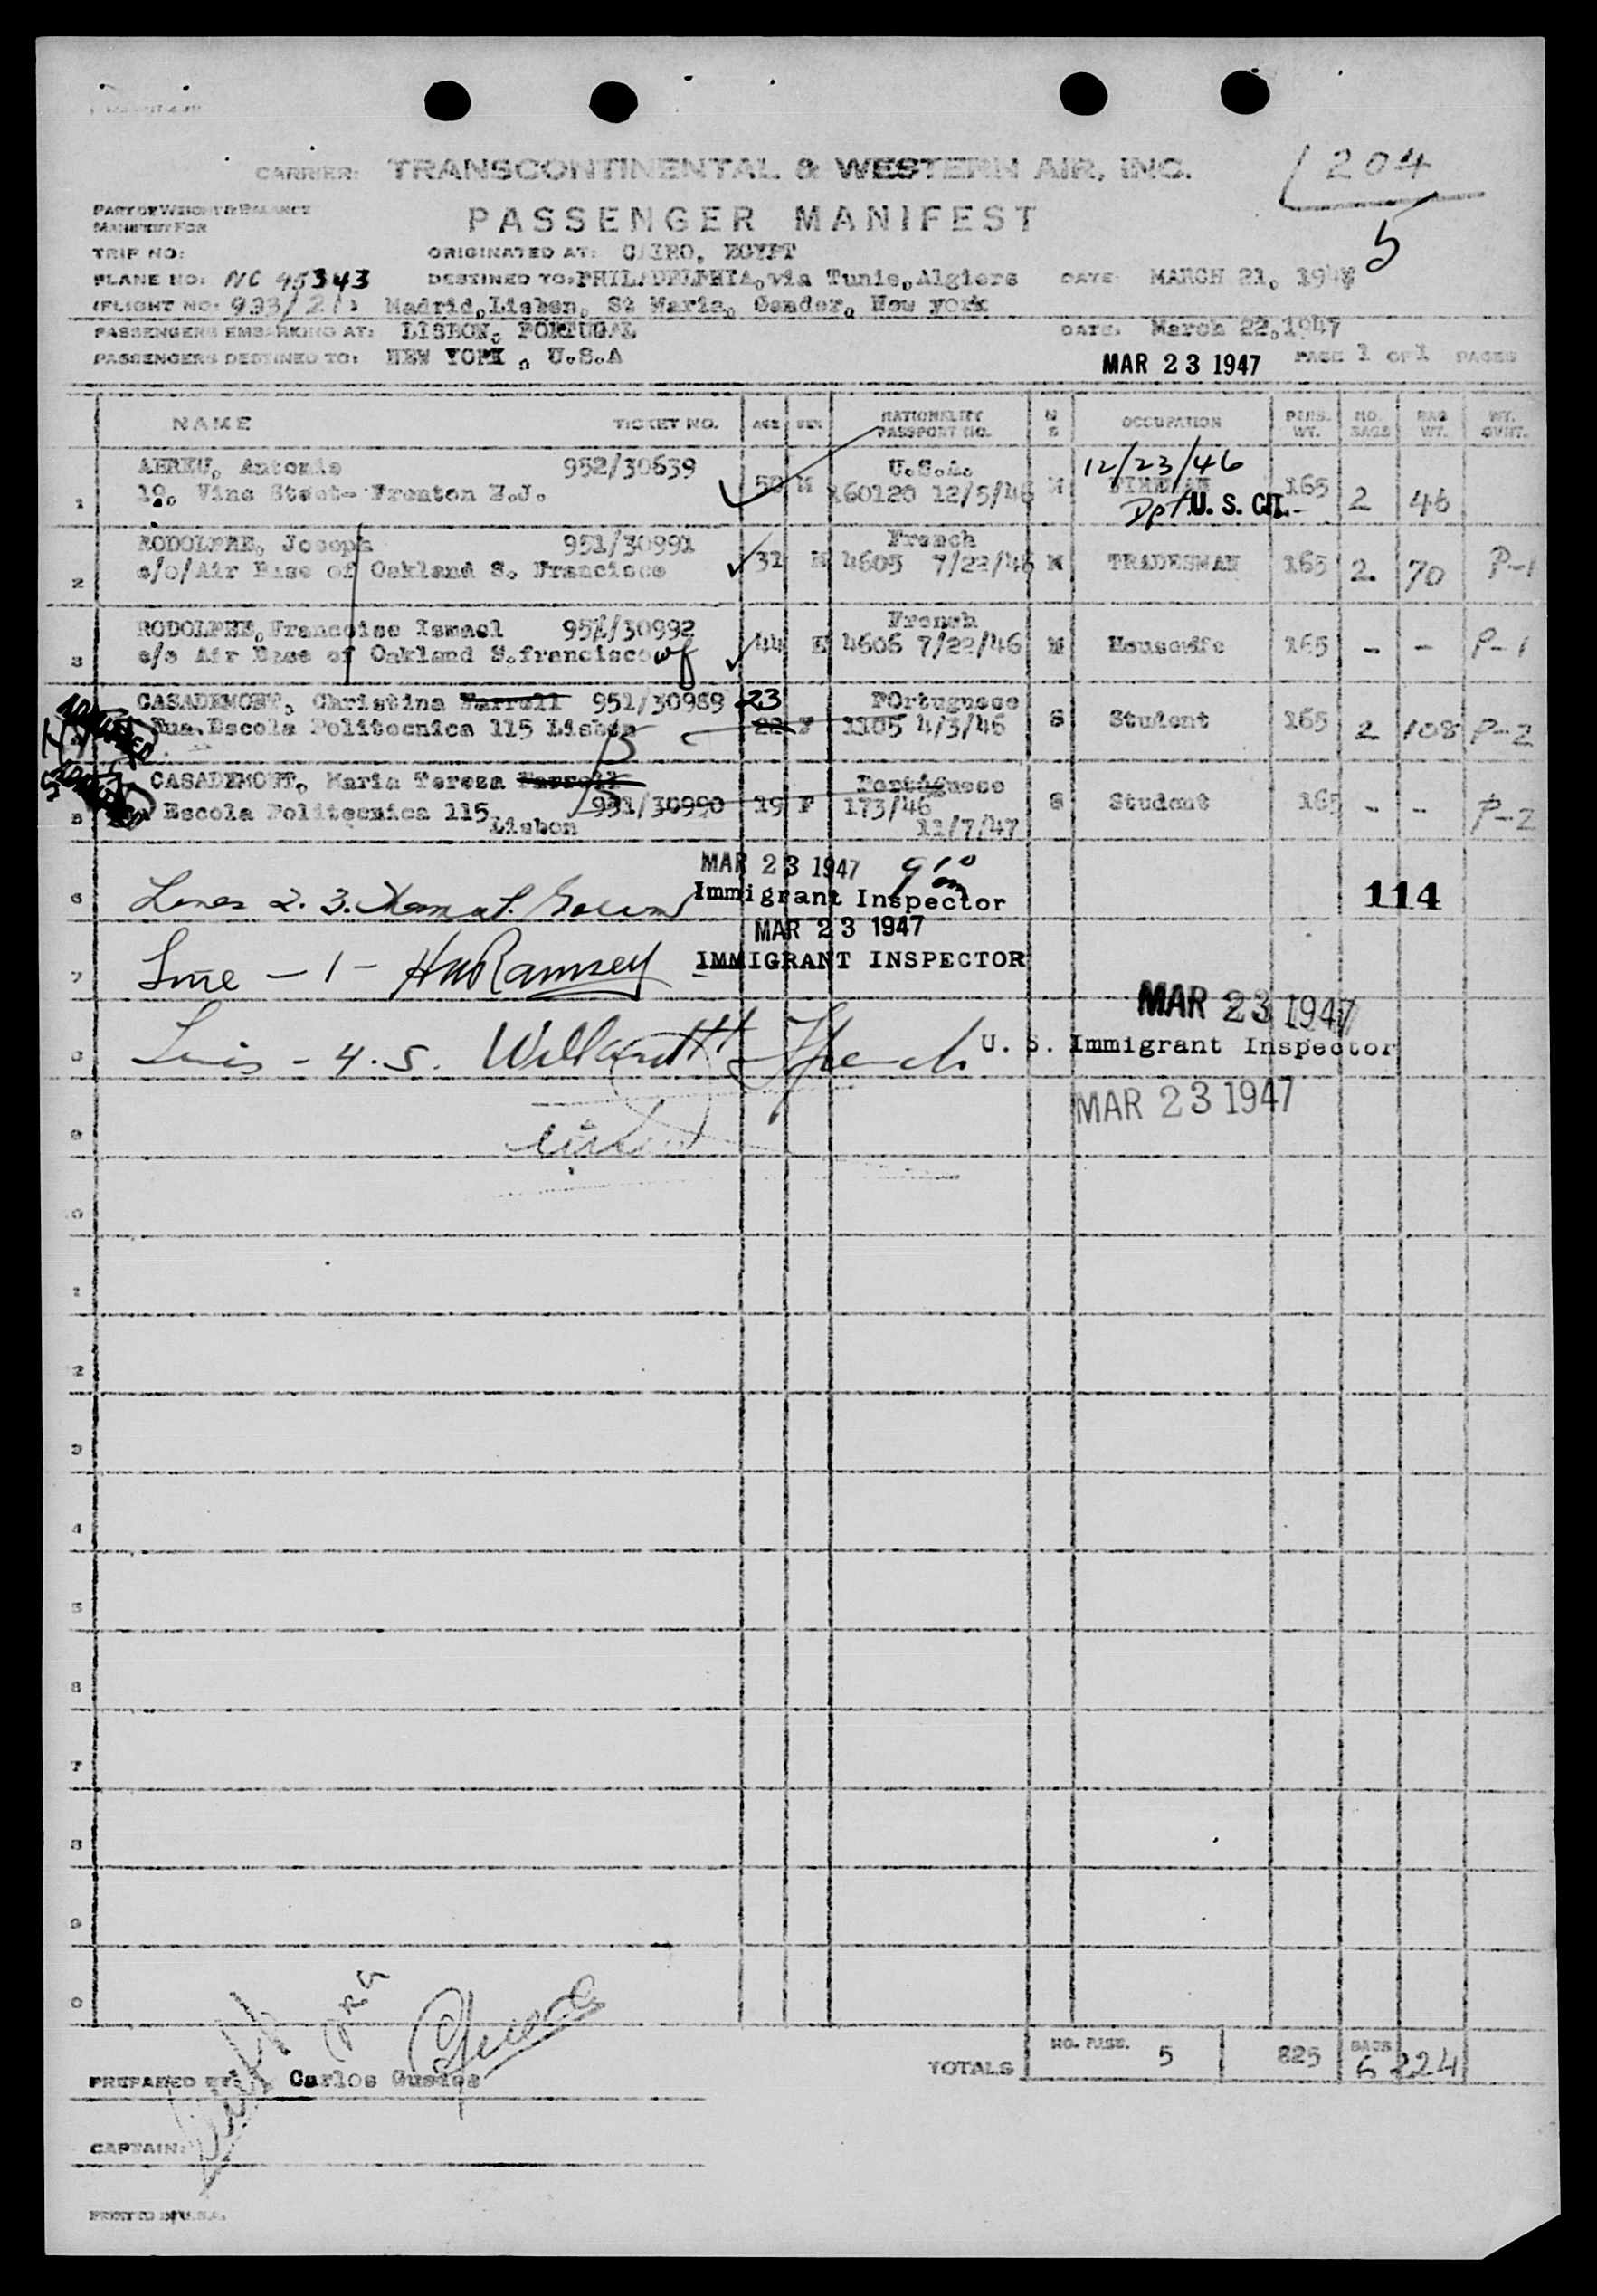 CARRIER: TRANSCONTINENTAL & WESTERN AIR, INC.
1204
5
PART OF WEIGHT & BALANCE
MANIFEST FOR
PASSENGER MANIFEST
TRIP NO:
ORIGINATED AT: CAIRO, EGYPT
PLANE NO: NC 45343
DESTINED TO: PHILADELPHIA, via Tunis, Algiers
DATE: MARCH 21, 194
(FLIGHT NO: 933/21) Madrid, Lisbon, St Maria, Gander, New york
PASSENGERS EMBARKING AT: LISBON, PORTUGAL
DATE: March 22, 1947
PASSENGERS DESTINED TO: NEW YORK, U.S.A
MAR 23 1947 PAGE 1 OF 1 PAGES
NAME TICKET NO. AGE SEX NATIONALITY PASSPORT NO. M S OCCUPATION PERS. WT. NO. BAGS BAG WT.
1 ABREU, Antonio 952/30639 50 M U.S.A. 12/23/46 165 2 46
19, Vine Steet- Trenton N.J. 160120 12/5/46 M FIREMAN Dpt U. S. CIT.
2 RODOLPHE, Joseph 951/30991 31 M French
c/o/Air Base of Oakland S. Francisco 4605 7/22/46 M TRADESMAN 165 2 70 P-1
3 RODOLPHE, Francoise Ismael 951/30992 44 French
c/o Air Base of Oakland S.francisco wf 4606 7/22/46 M Housewife 165 - - P-1
4 CASADEMONT, Christina Farrell 951/30989 23 POrtuguese
Rua Escola Politecnica 115 Lisbon 22 F 1105 4/3/46 S Student 165 2 108 P-2
5 CASADEMONT, Maria Tereza Farrell Portuguese
Escola Politecnica 115 Lisbon 951/30990 19 F 173/46 S Student 165 - - P-2
11/7/47
MAR 23 1947 9 10 am
6 Lines 2. 3. Immigrant Inspector 114
MAR 23 1947
7 Line - 1 - HW Ramsey IMMIGRANT INSPECTOR
MAR 23 1947
8 Lines - 4. 5. Willard French U. S. Immigrant Inspector
MAR 23 1947
9
0
1
2
3
4
5
6
7
8
9
0
TOTALS NO. PASS. 5 825 BAGS 6 224
PREPARED BY: Carlos Guedes
CAPTAIN:
PRINTED IN U.S.A.